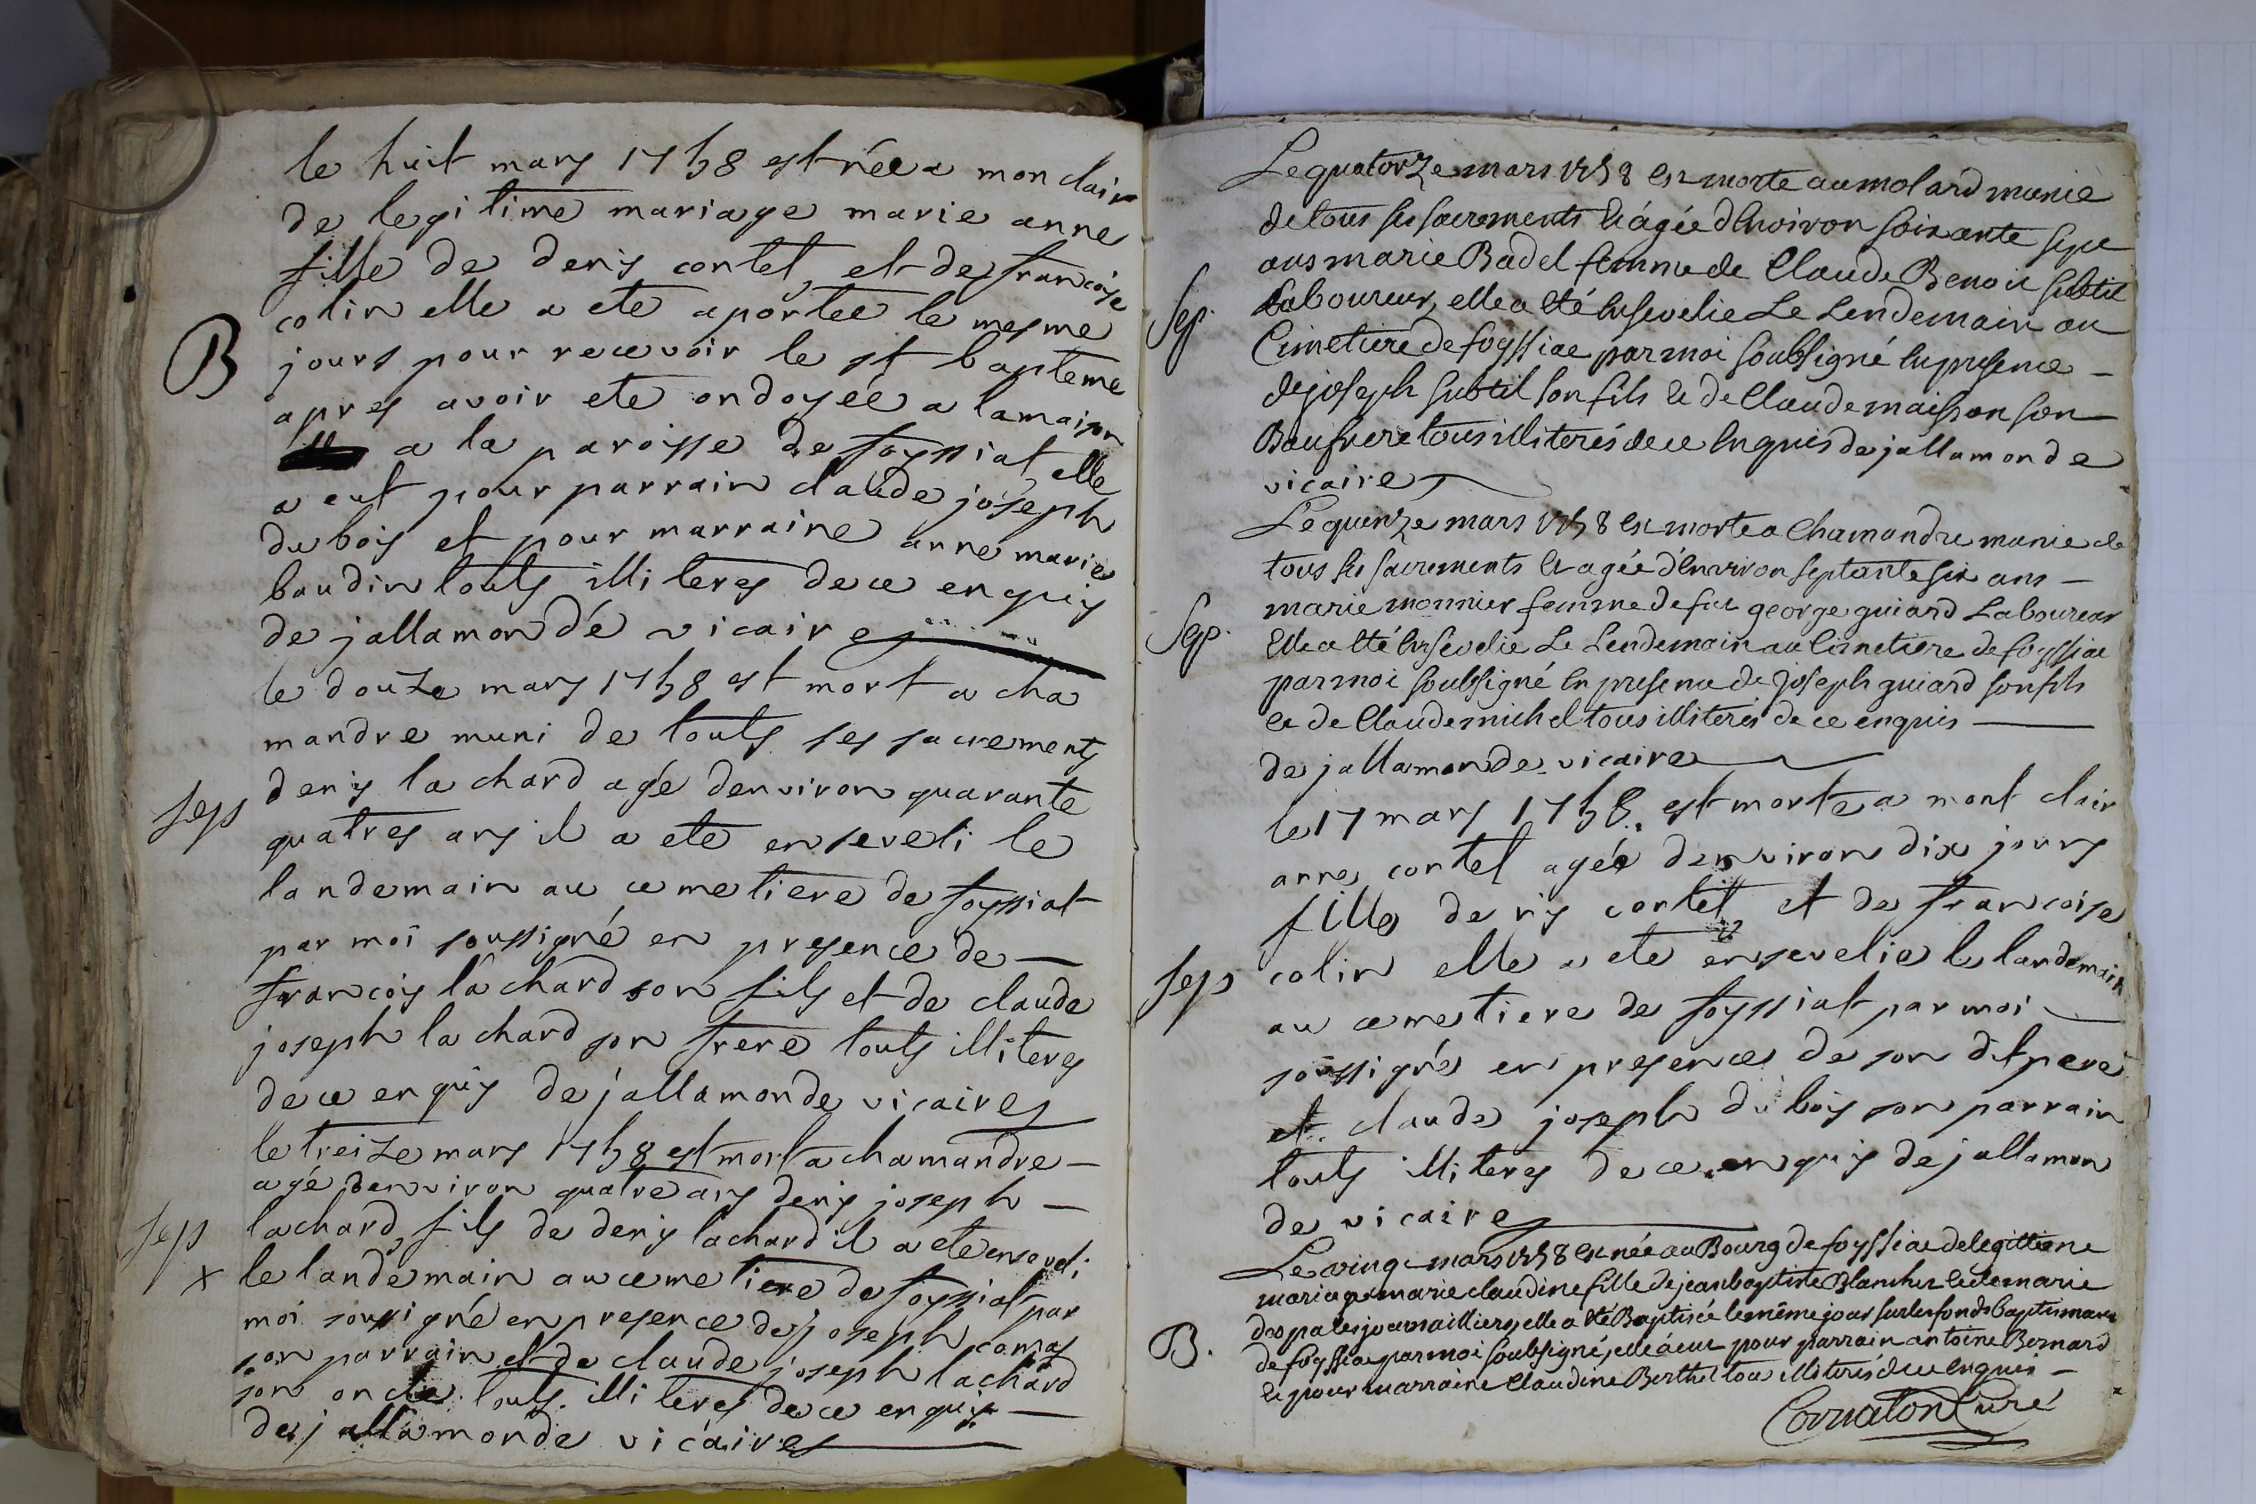 le huit mars 1758 est née a mon clair
de legitime mariage marie anne
fille de denis contet et de francoise
colin elle a ete aportée le mesme
B
jours pour recevoir le st bapteme
apres avoir ete ondoyée a la maison
a la paroisse de foyssiat elle
a eut pour parrain claude joseph
du bois et pour marraine anne marie
baudin touts illiteres de ce enquis
de jallamonde vicaire
le douze mars 1758 est mort a cha
mandre muni de touts ses sacrements
seps
denis la chard agé denviron quarante
quatres ans il a ete enseveli le
landemain au cemetiere de foyssiat
par moi soussigné en presence de
francois la chard son fils et de claude
joseph la chard son frere touts illiteres
de ce enquis de jallamonde vicaire
le treize mars 1758 est mort a chamandre
agé denviron quatre ans denis joseph
seps
lachard, fils de denis lachard il a ete enseveli
x le landemain au cemetiere de foyssiat par
moi soussigné en presence de joseph
son parrain et de claude joseph lachard
son oncle touts illiteres de ce enquis
de jallamonde vicaire
Le quatorze mars 1758 est morte au molard munie
de tous ses sacrements et agée d'environ soixante sept
ans marie Badel femme de Claude Benoit subtil
Sep.
Laboureur, elle a été ensevelie Le Lendemain au
Cimetiere de foyssiat par moi soubsigné en presence
de joseph subtil son fils et de Claude maisson son
Baufrere tous illiterés de ce enquis de jallamonde
vicaire
Le quenze mars 1758 est morte a Chamandre munie de
tous ses sacrements et agée d'environ septante six ans
marie monnier femme de fut george guiard Laboureur
Sep.
Elle a été ensevelie Le Lendemain au Cimetiere de foyssiat
par moi soubsigné en presence de joseph guiard son fils
et de Claude michel tous illiterés de ce enquis
de jallamonde vicaire
le 17 mars 1758 est morte a mont clair
anne contet agée denviron dix jours
fille denis contet et de francoise
seps
colin elle a ete ensevelie le landemain
au cemetiere de foyssiat par moi
soussigné en presence de son dit pere
et claude joseph du bois son parrain
touts illiteres de ce enquis de jallamon
de vicaire
Le vingt mars 1758 est née au Bourg de foyssiat de legittime
mariage marie claudine fille de jean baptiste Blanchet et de marie
journailliers, elle a été Baptisée le même jour sur les fonds baptismaux
B.
de foyssiat par moi soubsigné, elle a eut pour parrain antoine Bernard
et pour marraine Claudine Berthet tous illiterés de ce enquis
Corraton Curé